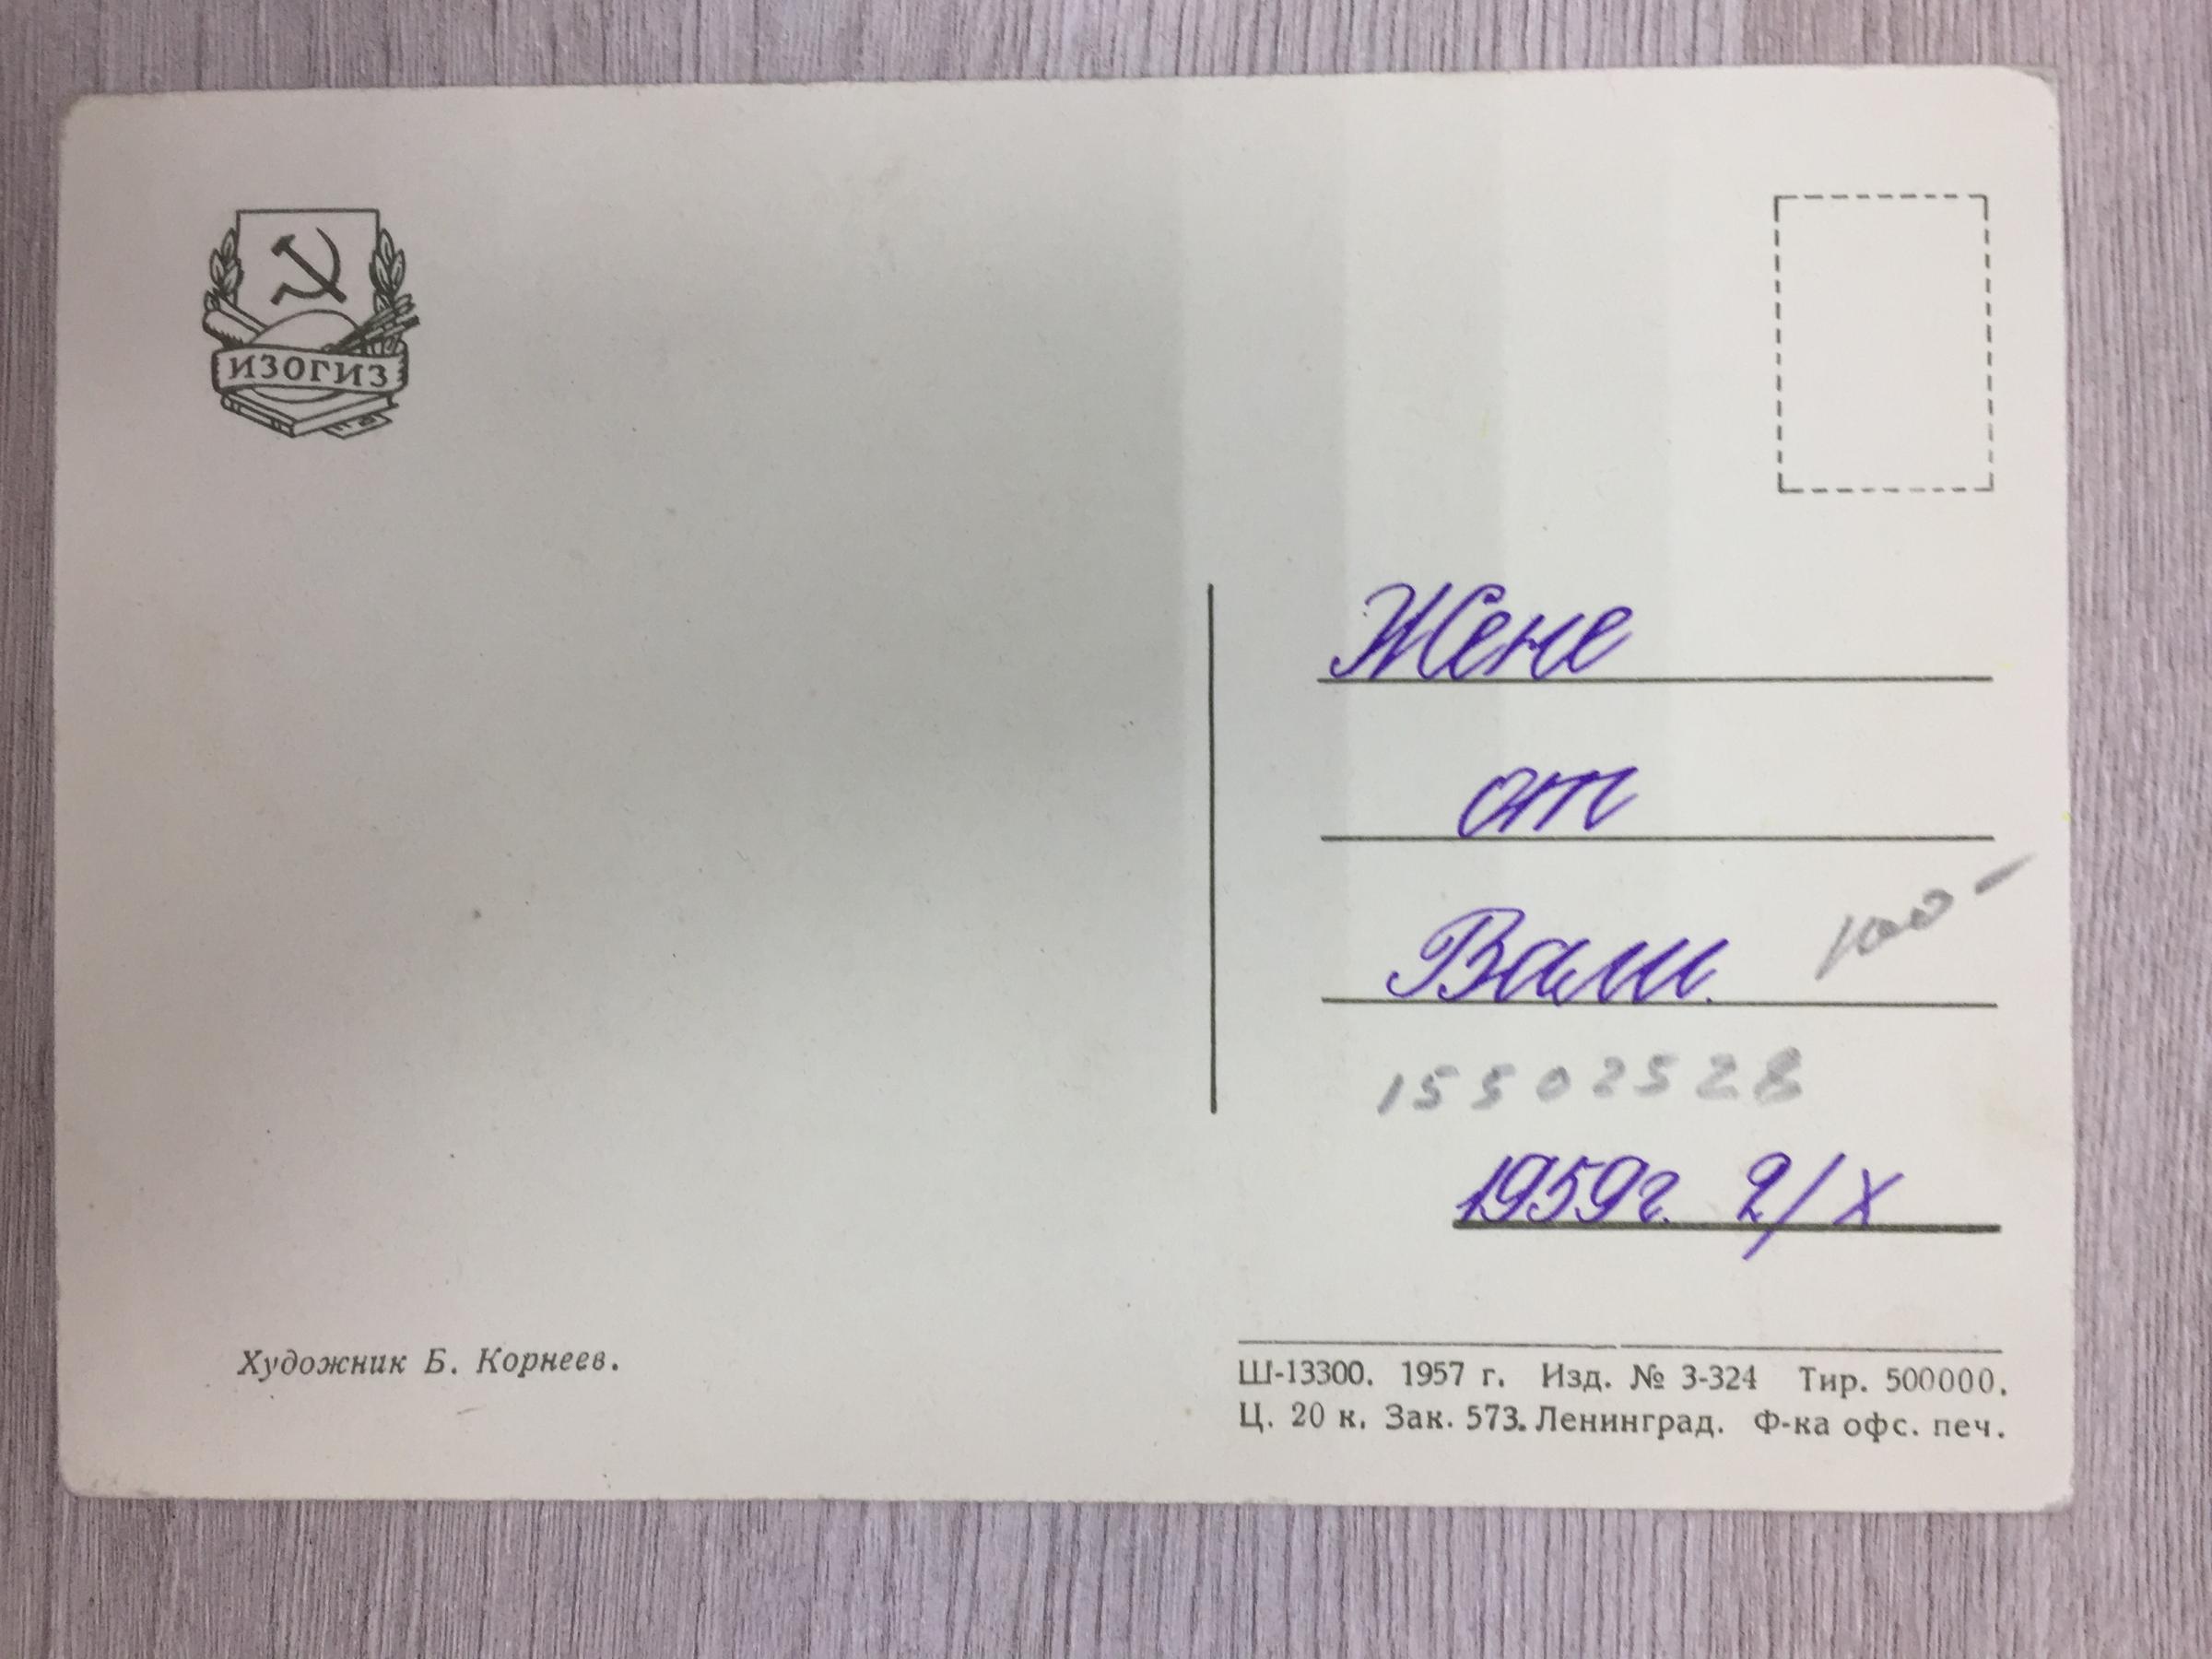 ИЗОГИЗ
Жене
от
Вали.
100-
15502528
1959г. 2/X
Художник Б. Корнеев.
Ш-13300. 1957 г. Изд. № 3-324 Тир. 500000.
Ц. 20 к. Зак. 573. Ленинград. Ф-ка офс. печ.